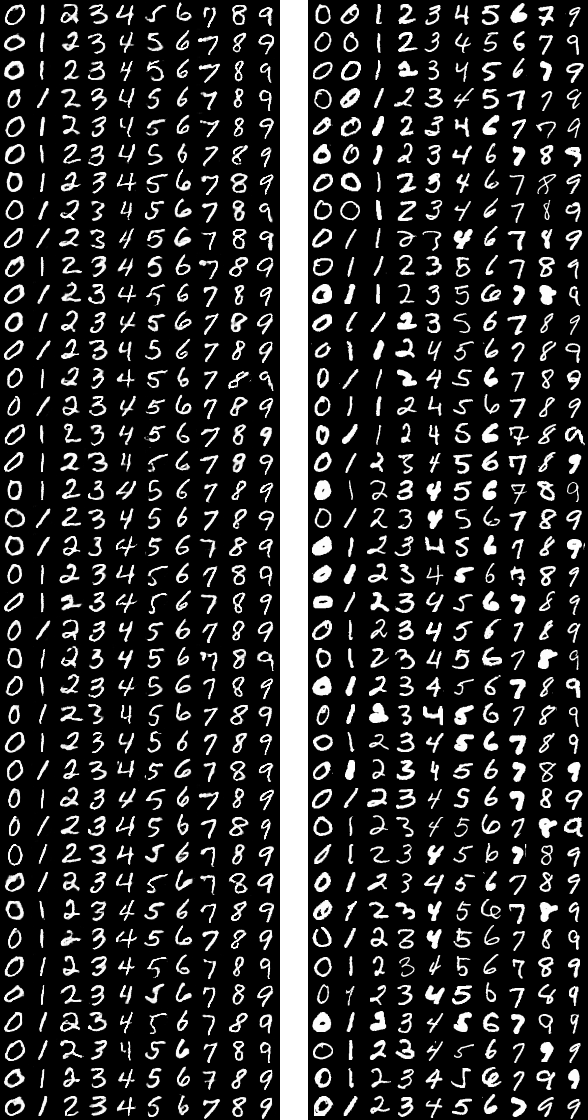 0 1 2 3 4 5 6 7 8 9
0 1 2 3 4 5 6 7 8 9
0 1 2 3 4 5 6 7 8 9
0 1 2 3 4 5 6 7 8 9
0 1 2 3 4 5 6 7 8 9
0 1 2 3 4 5 6 7 8 9
0 1 2 3 4 5 6 7 8 9
0 1 2 3 4 5 6 7 8 9
0 1 2 3 4 5 6 7 8 9
0 1 2 3 4 5 6 7 8 9
0 1 2 3 4 5 6 7 8 9
0 1 2 3 4 5 6 7 8 9
0 1 2 3 4 5 6 7 8 9
0 1 2 3 4 5 6 7 8 9
0 1 2 3 4 5 6 7 8 9
0 1 2 3 4 5 6 7 8 9
0 1 2 3 4 5 6 7 8 9
0 1 2 3 4 5 6 7 8 9
0 1 2 3 4 5 6 7 8 9
0 1 2 3 4 5 6 7 8 9
0 1 2 3 4 5 6 7 8 9
0 1 2 3 4 5 6 7 8 9
0 1 2 3 4 5 6 7 8 9
0 1 2 3 4 5 6 7 8 9
0 1 2 3 4 5 6 7 8 9
0 1 2 3 4 5 6 7 8 9
0 1 2 3 4 5 6 7 8 9
0 1 2 3 4 5 6 7 8 9
0 1 2 3 4 5 6 7 8 9
0 1 2 3 4 5 6 7 8 9
0 1 2 3 4 5 6 7 8 9
0 1 2 3 4 5 6 7 8 9
0 1 2 3 4 5 6 7 8 9
0 1 2 3 4 5 6 7 8 9
0 1 2 3 4 5 6 7 8 9
0 1 2 3 4 5 6 7 8 9
0 1 2 3 4 5 6 7 8 9
0 1 2 3 4 5 6 7 8 9
0 1 2 3 4 5 6 7 8 9
0 1 2 3 4 5 6 7 8 9
0 0 1 2 3 4 5 6 7 9
0 0 1 2 3 4 5 6 7 9
0 0 1 2 3 4 5 6 7 9
0 0 1 2 3 4 5 7 7 9
0 0 1 2 3 4 6 7 7 9
0 0 1 2 3 4 6 7 8 9
0 0 1 2 3 4 6 7 8 9
0 0 1 2 3 4 6 7 8 9
0 1 1 2 3 4 6 7 8 9
0 1 1 2 3 5 6 7 8 9
0 1 1 2 3 5 6 7 8 9
0 1 1 2 3 5 6 7 8 9
0 1 1 2 4 5 6 7 8 9
0 1 1 2 4 5 6 7 8 9
0 1 1 2 4 5 6 7 8 9
0 1 1 2 4 5 6 7 8 9
0 1 2 3 4 5 6 7 8 9
0 1 2 3 4 5 6 7 8 9
0 1 2 3 4 5 6 7 8 9
0 1 2 3 4 5 6 7 8 9
0 1 2 3 4 5 6 7 8 9
0 1 2 3 4 5 6 7 8 9
0 1 2 3 4 5 6 7 8 9
0 1 2 3 4 5 6 7 8 9
0 1 2 3 4 5 6 7 8 9
0 1 2 3 4 5 6 7 8 9
0 1 2 3 4 5 6 7 8 9
0 1 2 3 4 5 6 7 8 9
0 1 2 3 4 5 6 7 8 9
0 1 2 3 4 5 6 7 8 9
0 1 2 3 4 5 6 7 8 9
0 1 2 3 4 5 6 7 8 9
0 1 2 3 4 5 6 7 8 9
0 1 2 3 4 5 6 7 8 9
0 1 2 3 4 5 6 7 8 9
0 1 2 3 4 5 6 7 8 9
0 1 2 3 4 5 6 7 9 9
0 1 2 3 4 5 6 7 9 9
0 1 2 3 4 5 6 7 9 9
0 1 2 3 4 5 6 7 9 9